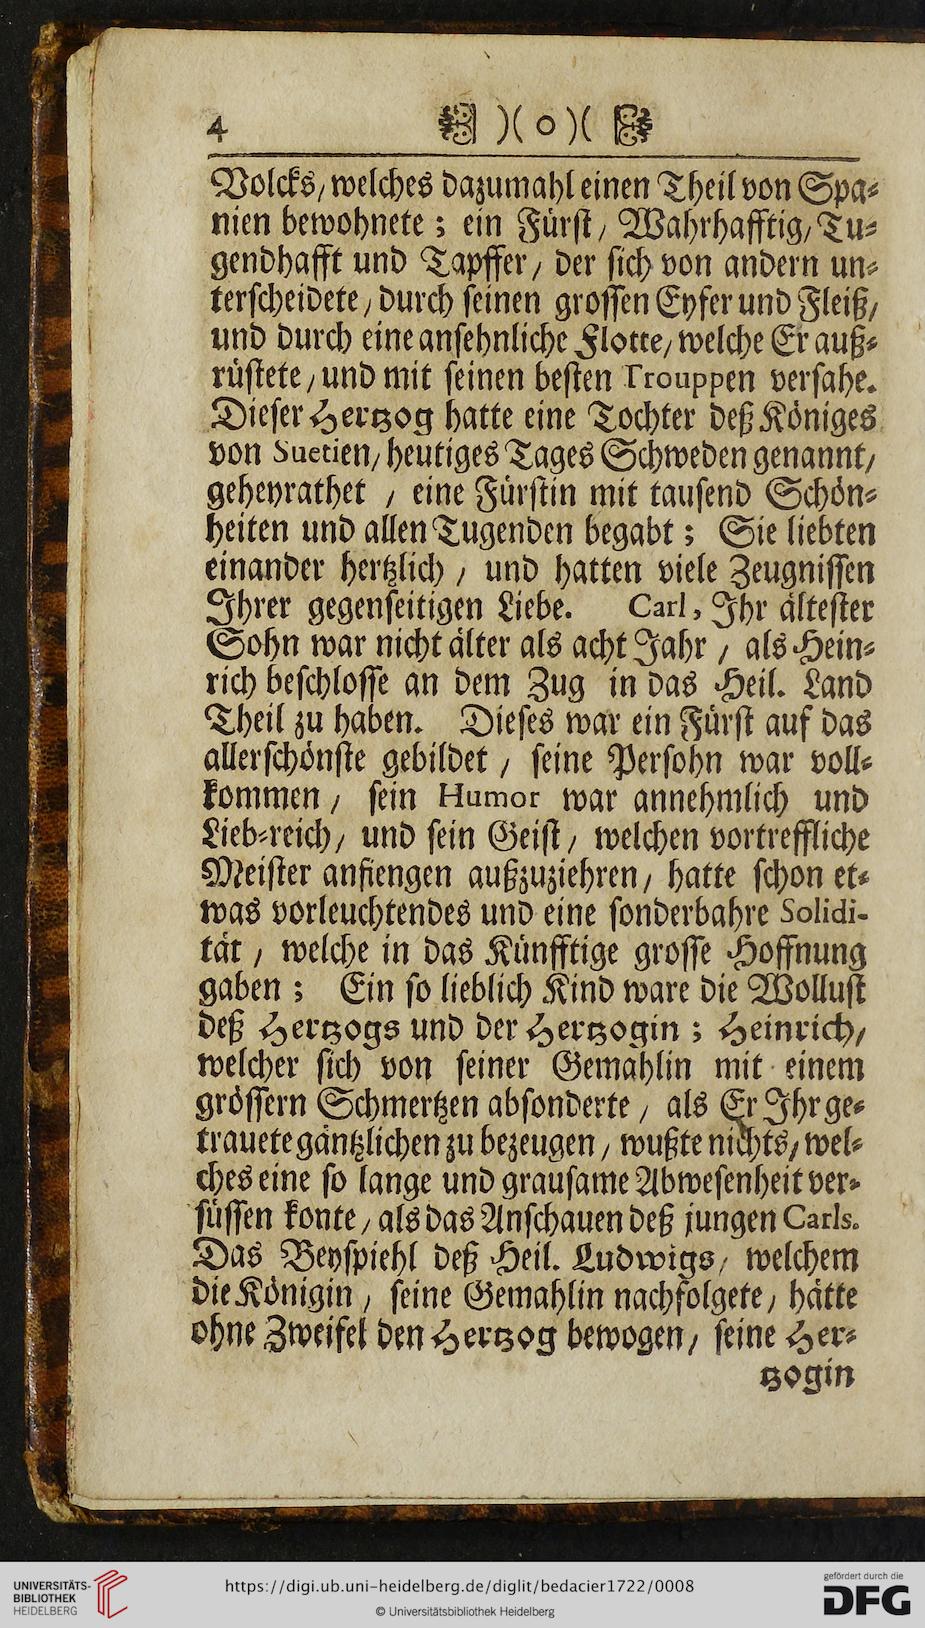 4 )( o )(
Volcks/ welches dazumahl einen Theil von Spa⸗
nien bewohnete; ein Fürst/ Wahrhafftig/ Tu⸗
gendhafft und Tapffer/ der sich von andern un⸗
terscheidete/ durch seinen grossen Eyfer und Fleiß/
und durch eine ansehnliche Flotte/ welche Er auß⸗
rüstete/ und mit seinen besten Trouppen versahe.
Dieser Hertzog hatte eine Tochter deß Königes
von Suetien/ heutiges Tages Schweden genannt/
geheyrathet / eine Fürstin mit tausend Schön⸗
heiten und allen Tugenden begabt; Sie liebten
einander hertzlich / und hatten viele Zeugnissen
Ihrer gegenseitigen Liebe. Carl, Ihr ältester
Sohn war nicht älter als acht Jahr / als Hein⸗
rich beschlosse an dem Zug in das Heil. Land
Theil zu haben. Dieses war ein Fürst auf das
allerschönste gebildet / seine Persohn war voll⸗
kommen / sein Humor war annehmlich und
Lieb⸗reich/ und sein Geist/ welchen vortreffliche
Meister anfiengen außzuziehren/ hatte schon et⸗
was vorleuchtendes und eine sonderbahre Solidi-
tät / welche in das Künfftige grosse Hoffnung
gaben; Ein so lieblich Kind ware die Wollust
deß Hertzogs und der Hertzogin; Heinrich/
welcher sich von seiner Gemahlin mit einem
grössern Schmertzen absonderte / als Er Ihr ge⸗
trauete gäntzlichen zu bezeugen / wußte nichts/ wel⸗
ches eine so lange und grausame Abwesenheit ver⸗
süssen konte/ als das Anschauen deß jungen Carls.
Das Beyspiehl deß Heil. Ludwigs/ welchem
die Königin / seine Gemahlin nachfolgete/ hätte
ohne Zweifel den Hertzog bewogen/ seine Her⸗
tzogin
UNIVERSITÄTS-
BIBLIOTHEK
HEIDELBERG
https://digi.ub.uni-heidelberg.de/diglit/bedacier1722/0008
© Universitätsbibliothek Heidelberg
gefördert durch die
DFG